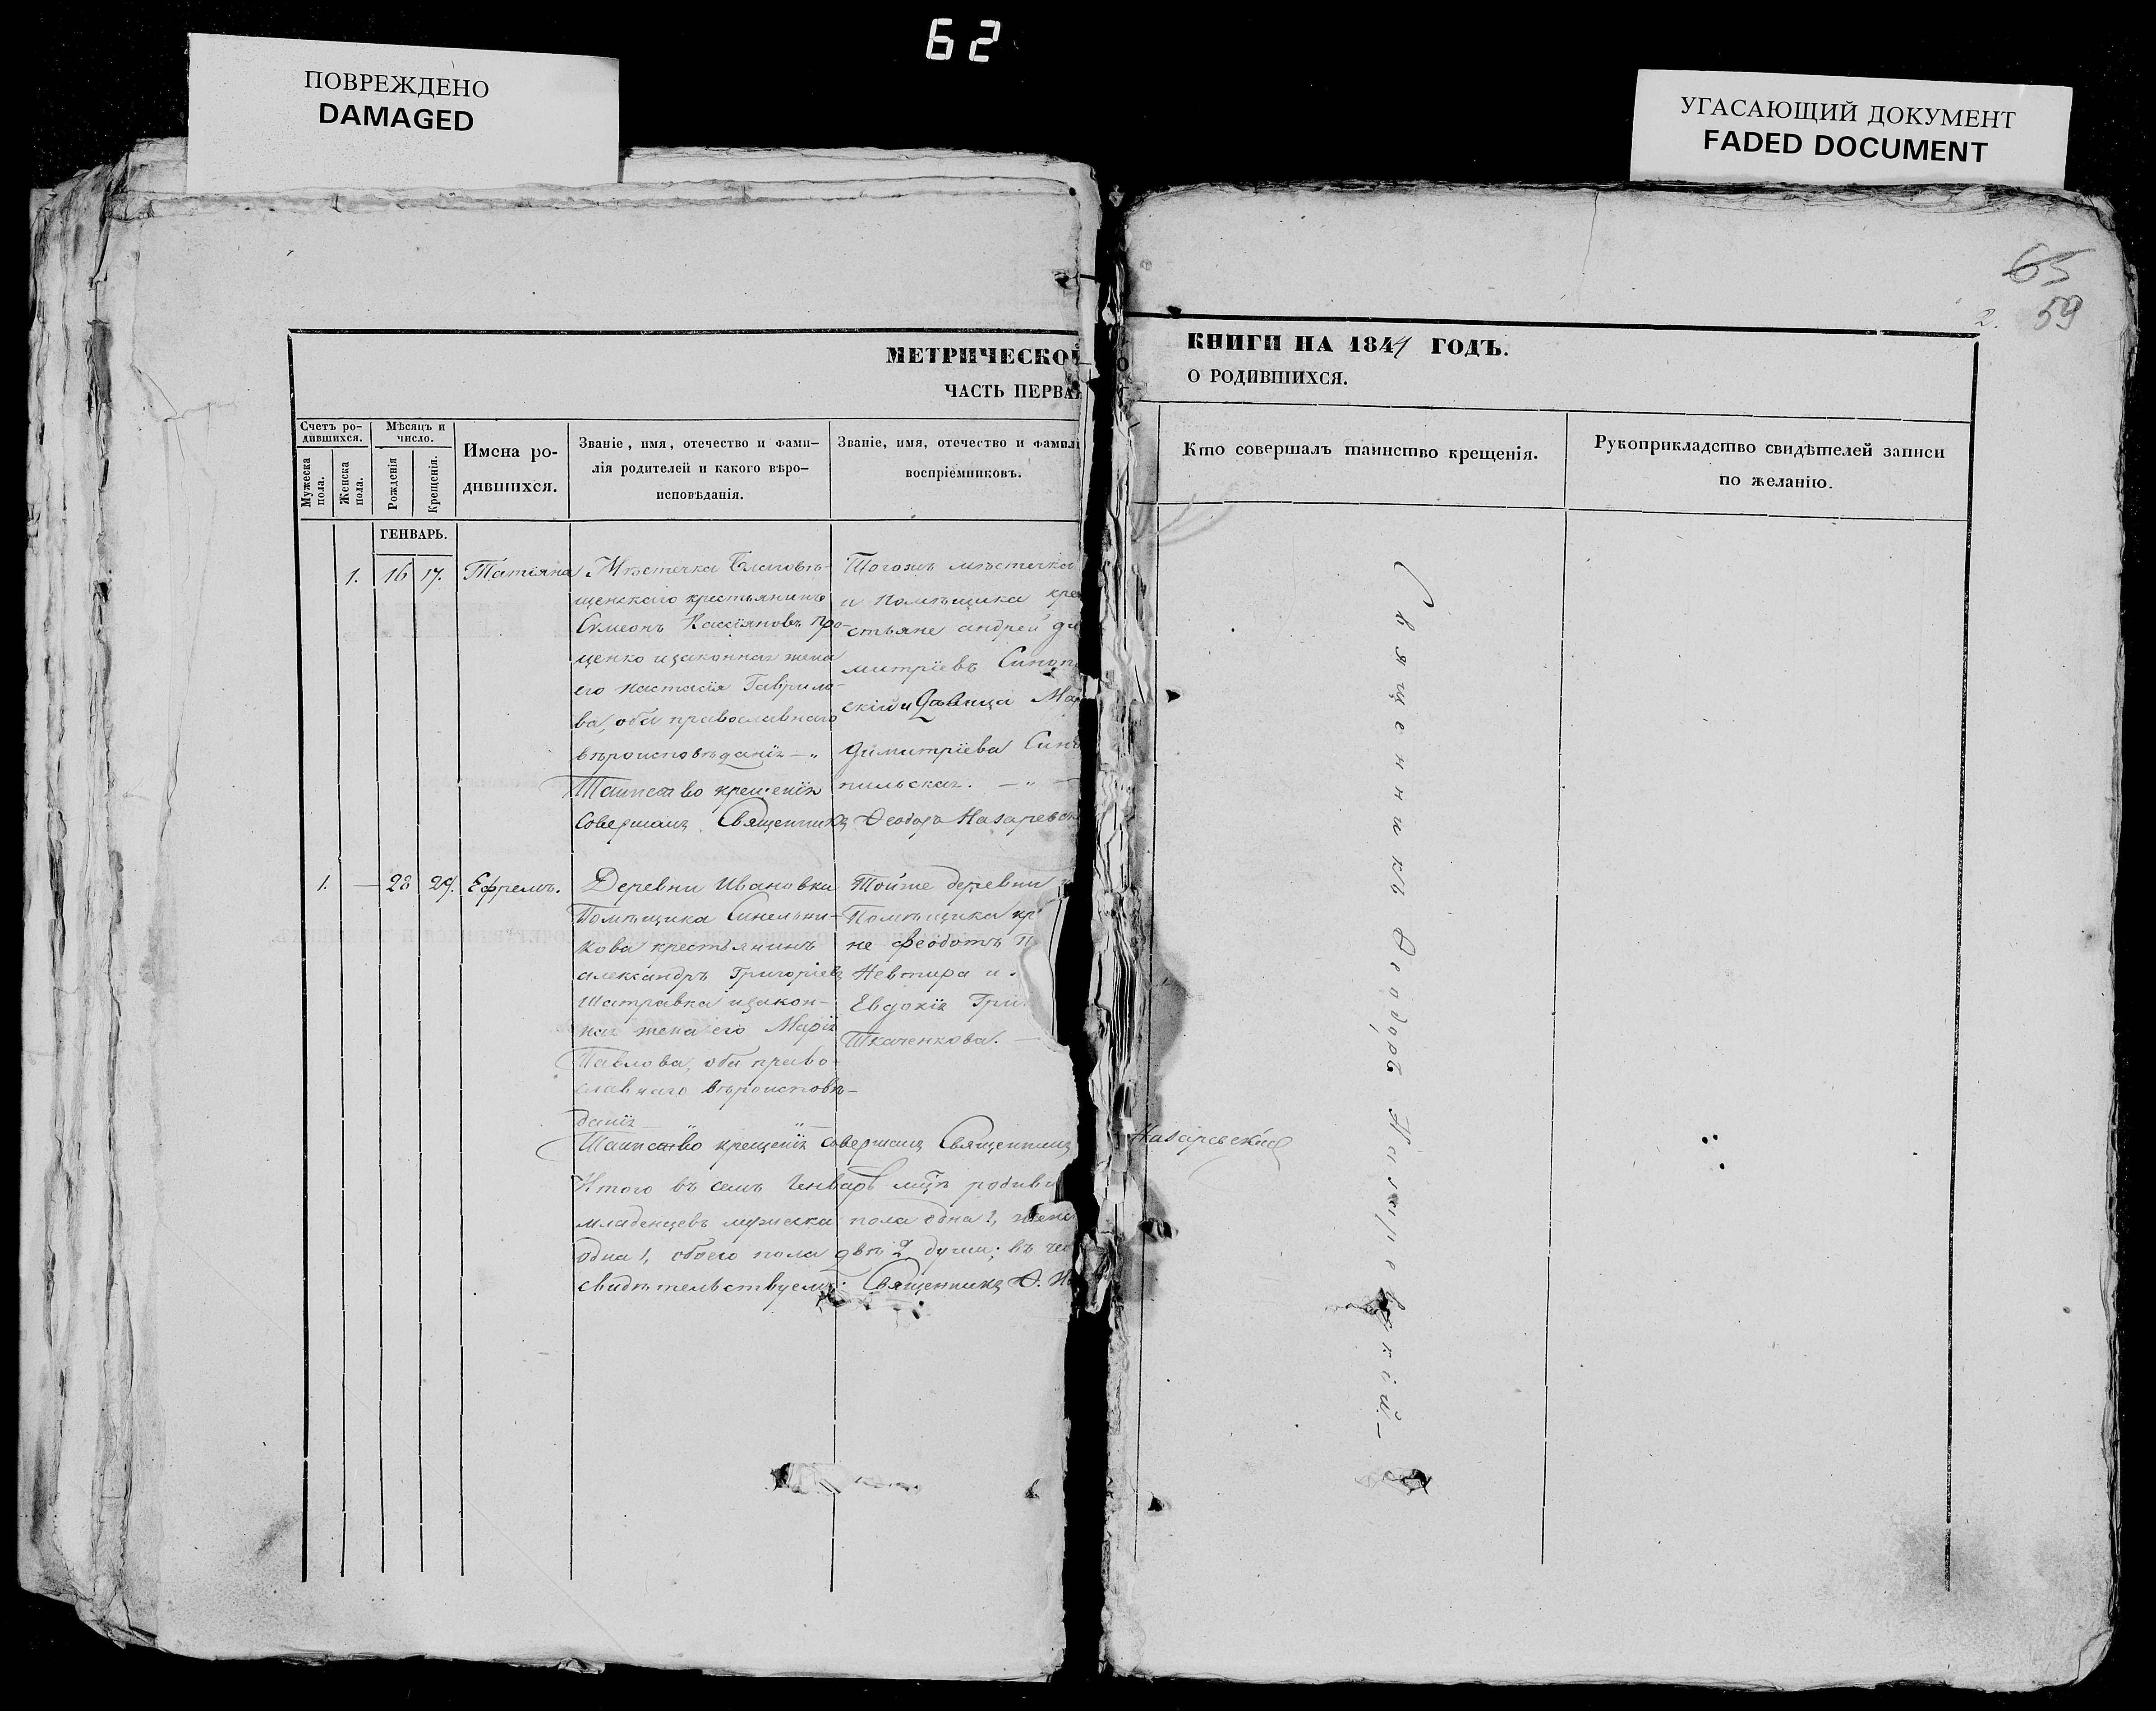 62
ПОВРЕЖДЕНО
DAMAGED
УГАСАЮЩИЙ ДОКУМЕНТ
FADED DOCUMENT
65
59
2.
МЕТРИЧЕСКОЙ
КНИГИ НА 1844 ГОДЪ.
ЧАСТЬ ПЕРВАЯ
О РОДИВШИХСЯ.
Счетъ ро-
дившихся.
Мужеска
пола.
Женска
пола.
Мѣсяцъ и
число.
Рожденія
Крещенія.
Имена ро-
дившихся.
Званіе, имя, отечество и фами-
лія родителей и какого вѣро-
исповѣданія.
Званіе, имя, отечество и фамилі
воспріемниковъ.
Кто совершалъ таинство крещенія.
Рукоприкладство свидѣтелей записи
по желанію.
ГЕНВАРЬ.
1. 16 17. Татіяна
Мѣстечка Благовѣ-
щенскаго крестьянинъ
Симеонъ Кассіяновъ Про-
ценко изаконная жена
его Настасія Гаврило-
ва, оба православнаго
вѣроисповѣданія — „
Тогожъ мѣстечка
и помѣщика кре
стьяне андрей ди
митріевъ Синоп
скій и Дѣвица Мар
Димитріева Сино
пильская. — „ —
Таинство крещенія
совершалъ Священникъ Ѳеодоръ Назаревск
1. — 28 29. Ефремъ.
Деревни Ивановки
Помѣщика Синельни-
кова крестьянинъ
александръ Григоріевъ
Шатравка изакон-
ная жена его Марія
Павлова, оба право-
славнаго вѣроисповѣ-
данія — „ — „ —
Тойже деревни и
Помѣщика кр
не Феодотъ П
Невтира и
Евдокія Гри
Ткаченкова. —
Таинство крещенія совершалъ Священникъ
Назаревскій
Итого въ семъ Генварѣ мцѣ родив
младенцевъ мужеска пола одна 1, женс
одна 1, обоего пола двѣ 2 души; въ че
свидѣтельствуемъ: Священникъ Ѳ. На
Священникъ Ѳеодоръ Назаревскій. —